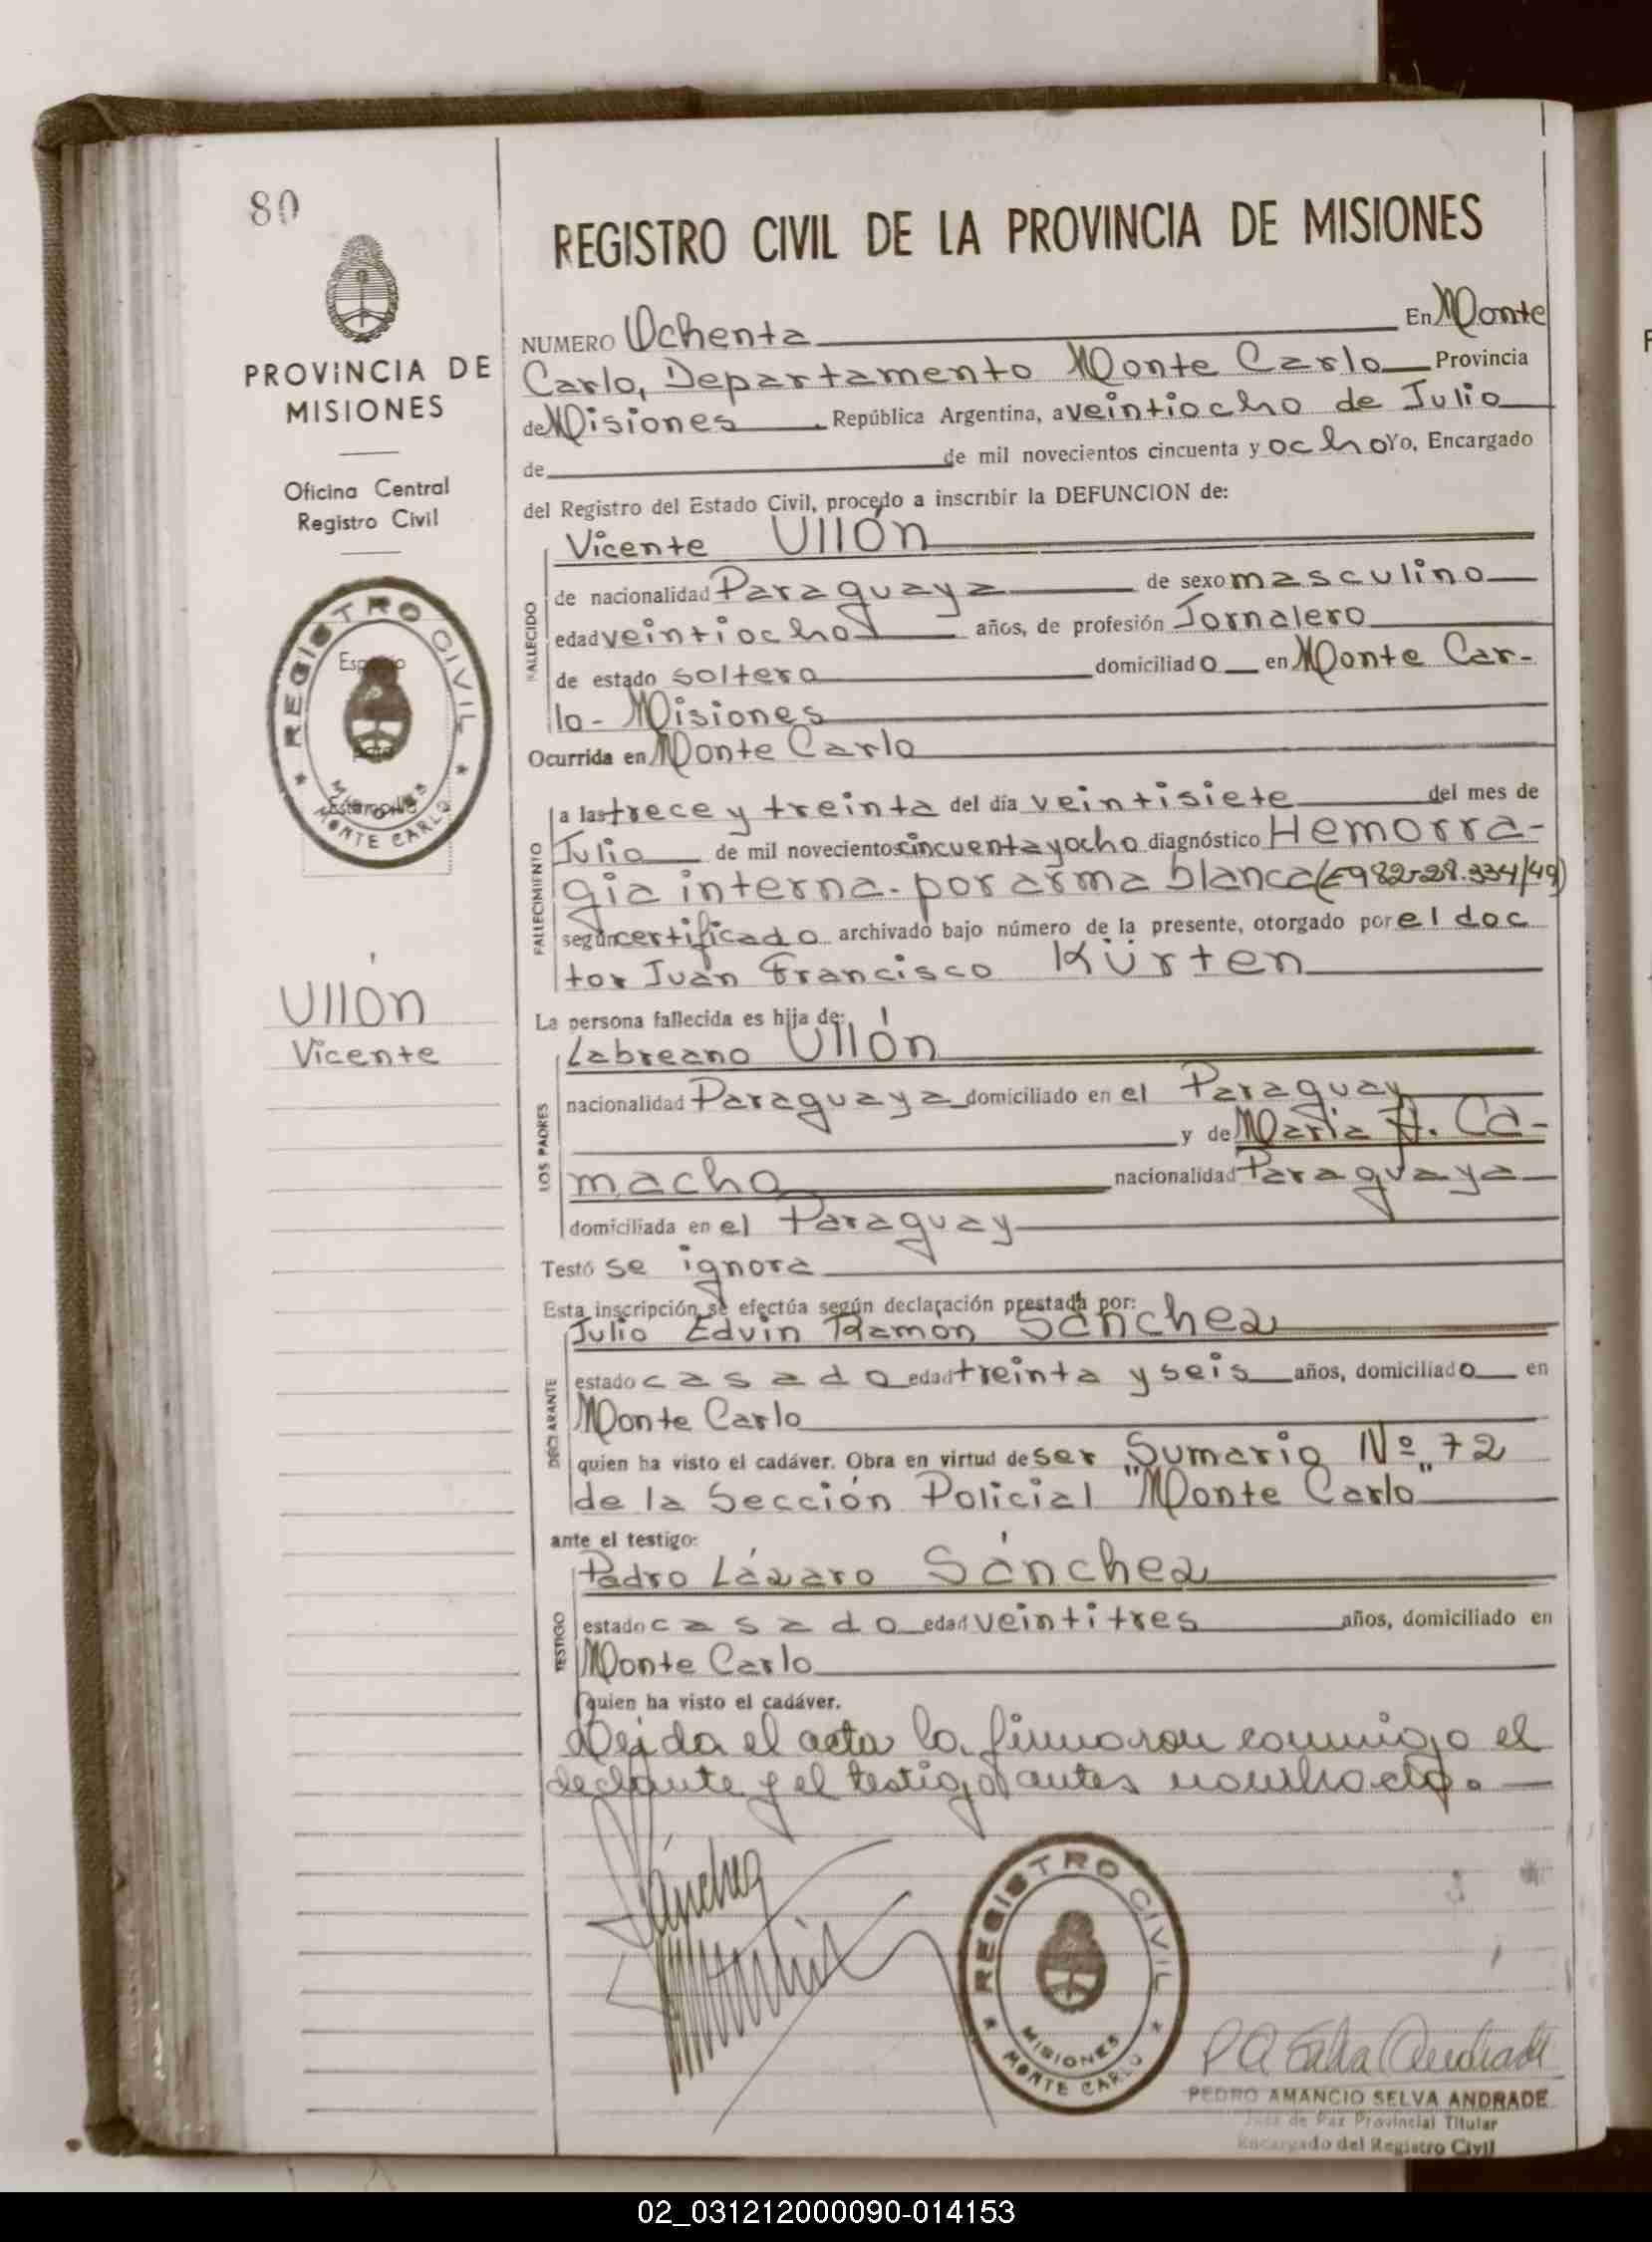 80
REGISTRO CIVIL DE LA PROVINCIA DE MISIONES
PROVINCIA DE
MISIONES
Oficina Central
Registro Civil
REGISTRO CIVIL
MISIONES
MONTE CARLO
Espacio
para
Estampilla
Ullón
Vicente
NUMERO Ochenta En Monte
Carlo, Departamento Monte Carlo Provincia
de Misiones República Argentina, a veintiocho de Julio
de de mil novecientos cincuenta y ocho Yo, Encargado
del Registro del Estado Civil, procedo a inscribir la DEFUNCION de:
Vicente Ullón
FALLECIDO
de nacionalidad Paraguaya de sexo masculino
edad veintiocho años, de profesión Jornalero
de estado soltero domiciliado en Monte Car-
lo - Misiones
Ocurrida en Monte Carlo
FALLECIMIENTO
a las trece y treinta del día veintisiete del mes de
Julio de mil novecientos cincuenta y ocho diagnóstico Hemorra-
gia interna. por arma blanca (E982-28.334/49)
según certificado archivado bajo número de la presente, otorgado por el doc
tor Juan Francisco Kürten
La persona fallecida es hija de:
LOS PADRES
Labreano Ullón
nacionalidad Paraguaya domiciliado en el Paraguay
y de Maria A. Ca-
macho nacionalidad Paraguaya
domiciliada en el Paraguay
Testó se ignora
Esta inscripción se efectúa según declaración prestada por:
DECLARANTE
Julio Edvin Ramón Sánchez
estado casado edad treinta y seis años, domiciliado en
Monte Carlo
quien ha visto el cadáver. Obra en virtud de ser Sumario Nº 72
de la Sección Policial "Monte Carlo"
ante el testigo:
TESTIGO
Pedro Lázaro Sánchez
estado casado edad veintitres años, domiciliado en
Monte Carlo
quien ha visto el cadáver.
Leida el acta la firmaron conmigo el
declante y el testigo antes nombrado.
Sánchez
REGISTRO CIVIL
MISIONES
MONTE CARLO
P A Selva Andrade
PEDRO AMANCIO SELVA ANDRADE
Juez de Paz Provincial Titular
Encargado del Registro Civil
02_031212000090-014153